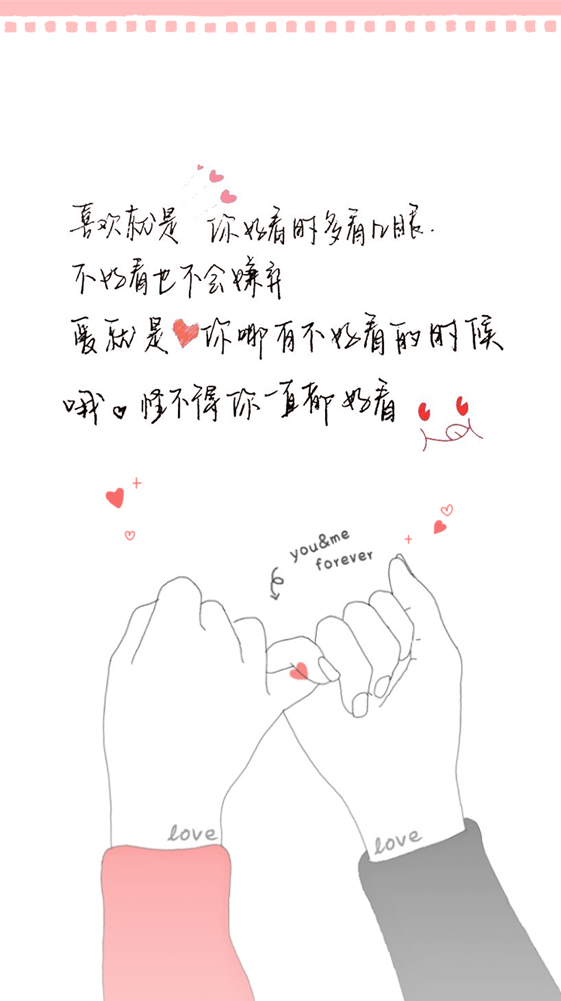 喜欢就是 你好看的多看几眼.
不好看也不会嫌弃
爱就是你哪有不好看的时候
哦 怪不得你一直都好看
you&me
forever
love
love